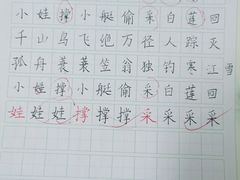 小娃撑小艇偷采白莲回
千山鸟飞绝万径人踪灭
孤舟蓑蓑笠翁独钓寒江雪
小娃撑小艇偷采白莲回
娃娃娃撑撑撑采采采采